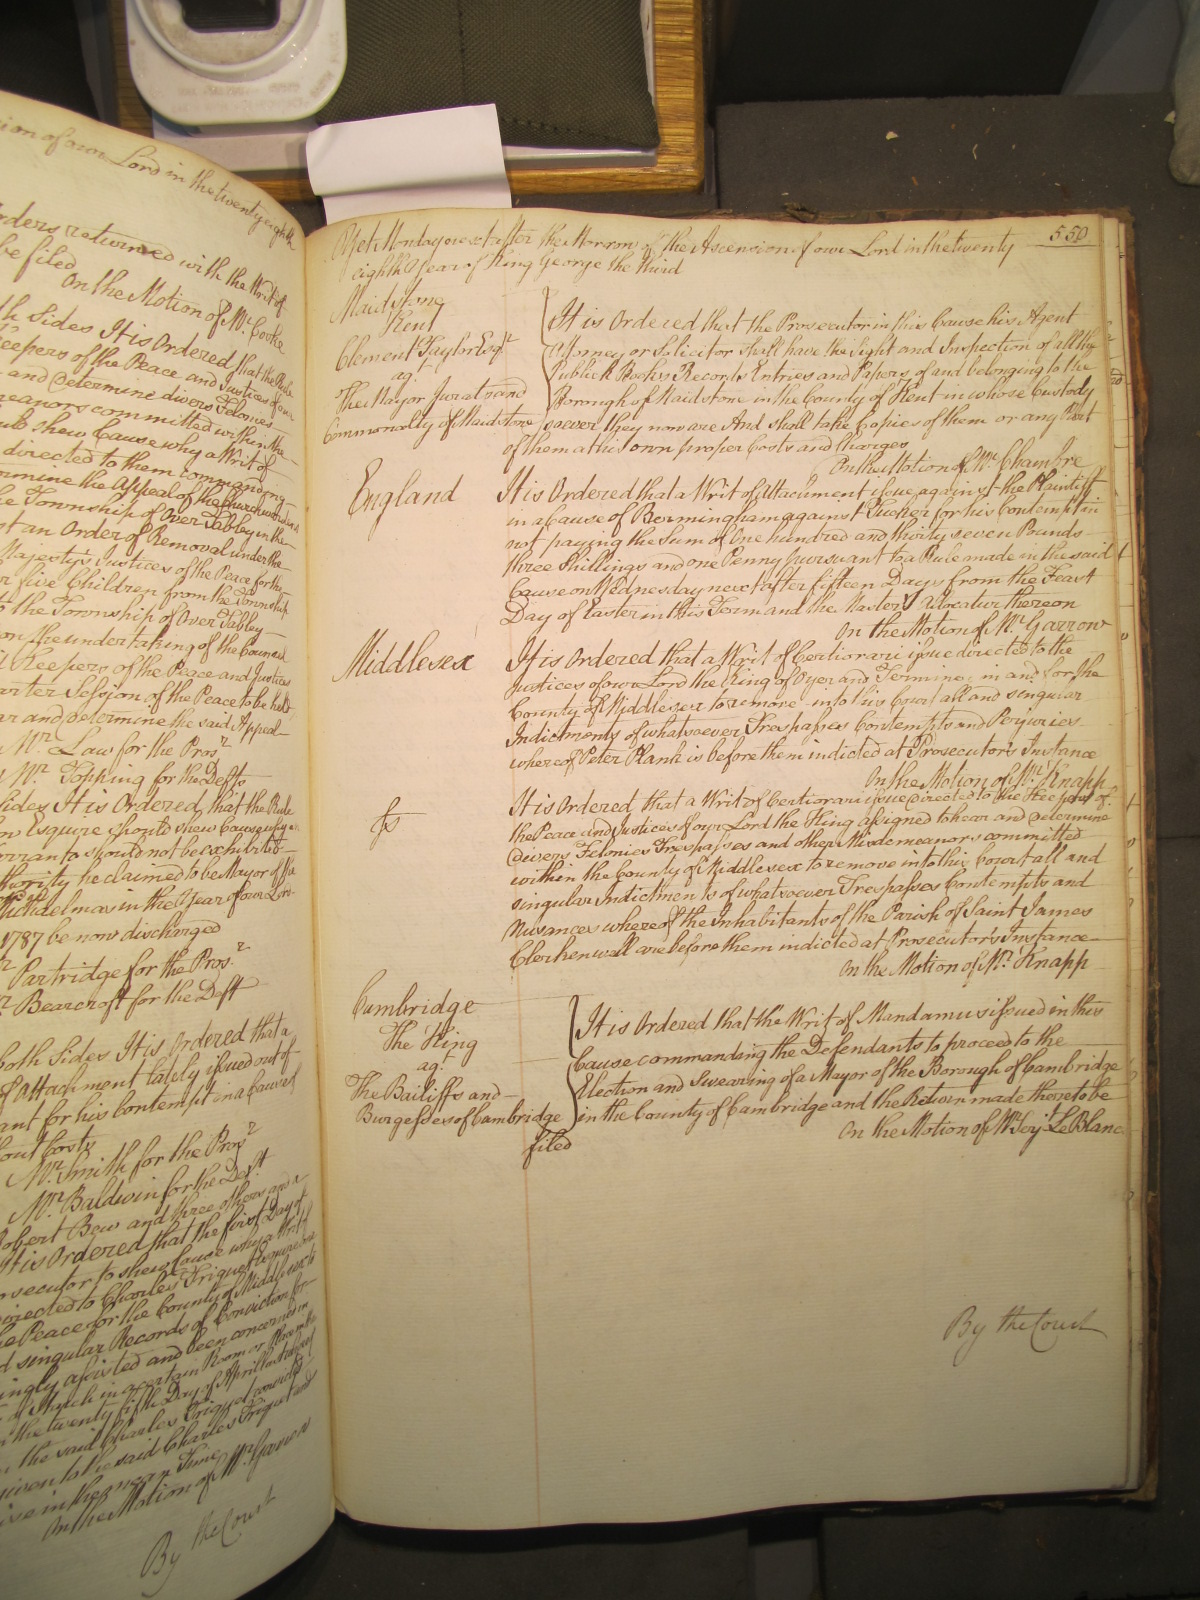 sion of our Lord in the twenty eighth
Orders returned with the Writ of
be filed
On the Motion of Mr. Cooke
th Sides It is Ordered that the Rule
Keepers of the Peace and Justices of our
and Determine divers Felonies
meanors committed within the
uld shew Cause why a Writ of
directed to them commanding
rmine the Appeal of the Churchwardens
he Township of Over Tabley in the
st an Order of Removal under the
Majesty's Justices of the Peace for the
r five Children from the Township
o the Township of Over Tabley
on the undertaking of the Counsel
Keepers of the Peace and Justices
arter Session of the Peace to be held
ar and determine the said Appeal
Mr. Law for the Prosr
Mr. Topping for the Defts
Sides It is Ordered that the Rule
Esquire should shew Cause why
arranto should not be exhibited
thority he claimed to be Mayor of
Michaelmas in the Year of our Lord
1787 be now discharged
Mr Partridge for the Prosr
Mr Bearcroft for the Deft
both Sides It is Ordered that a
of Attachment lately issued out of
ant for his Contempt in a Cause of
out Costs
Mr. Smith for the Prosr
Mr. Baldwin for the Deft
Robert Bew and three others and a
It is Ordered that the first Day of
rosecutor to shew Cause why a Writ
directed to Charles Triquet Esquire one
he Peace for the County of Middlesex to
d singular Records of Conviction for
ingly assisted and been concerned in
in a certain Room or
the twenty fifth Day of April last
the said Charles Triquet
given to the said Charles Triquet and
On the Motion of Mr Garrow
By the Court
550
Yet Monday next after the Morrow of the Ascension of our Lord in the twenty
eighth Year of King George the third
Maidstone
Kent
Clement Taylor Esqr.
agt
The Mayor Jurats and
Commonalty of Maidstone
It is Ordered that the Prosecutor in this Cause his Agent
Attorney or Solicitor shall have the Sight and Inspection of all the
Publick Books Records Entries and Papers of and belonging to the
Borough of Maidstone in the County of Kent in whose Custody
soever they now are And shall take Copies of them or any Part
of them at his own proper Costs and Charges
On the Motion of Mr. Chambre
England
It is Ordered that a Writ of Attachment issue against the Plaintiff
in a Cause of Bermingham against Tucker for his Contempt in
not paying the Sum of One hundred and thirty seven Pounds
three Shillings and one Penny pursuant to a Rule made in the said
Cause on Wednesday next after fifteen Days from the Feast
Day of Easter in this Term and the Master's Allocatur thereon
On the Motion of Mr. Garrow
Middlesex
It is Ordered that a Writ of Certiorari issue directed to the
Justices of our Lord the King of Oyer and Terminer in and for the
County of Middlesex to remove into this Court all and singular
Indictments of whatsoever Trespasses Contempts and Perjuries
whereof Peter Plank is before them indicted at Prosecutor's Instance
On the Motion of Mr. Knapp
fs
It is Ordered that a Writ of Certiorari issue directed to the Keepers of
the Peace and Justices of our Lord the King assigned to hear and Determine
divers Felonies Trespasses and other Misdemeanors committed
within the County of Middlesex to remove into this Court all and
singular Indictments of whatsoever Trespasses Contempts and
Nusances whereof the Inhabitants of the Parish of Saint James
Clerkenwell are before them indicted at Prosecutor's Instance
On the Motion of Mr. Knapp
Cambridge
The King
agt.
The Bailiffs and
Burgesses of Cambridge
It is Ordered that the Writ of Mandamus issued in this
Cause commanding the Defendants to proceed to the
Election and Swearing of a Mayor of the Borough of Cambridge
in the County of Cambridge and the Return made thereto be
filed
On the Motion of Mr. Serjt. Le Blanc
By the Court